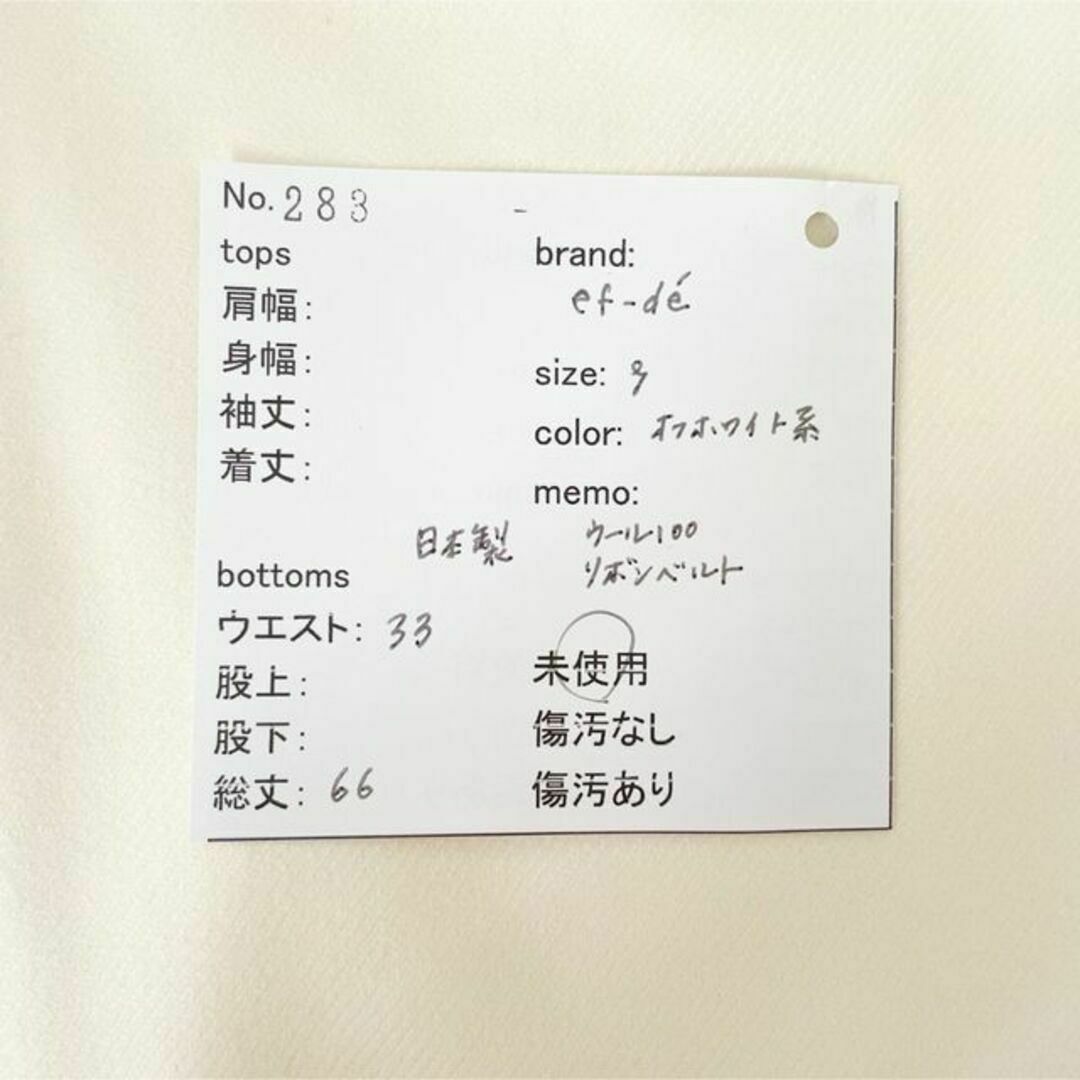 No. 283
tops
肩幅:
身幅:
袖丈:
着丈:
brand:
ef-dé
size: 9
color: オフホワイト系
memo:
日本製
ウール100
リボンベルト
bottoms
ウエスト: 33
股上:
股下:
総丈: 66
未使用
傷汚なし
傷汚あり